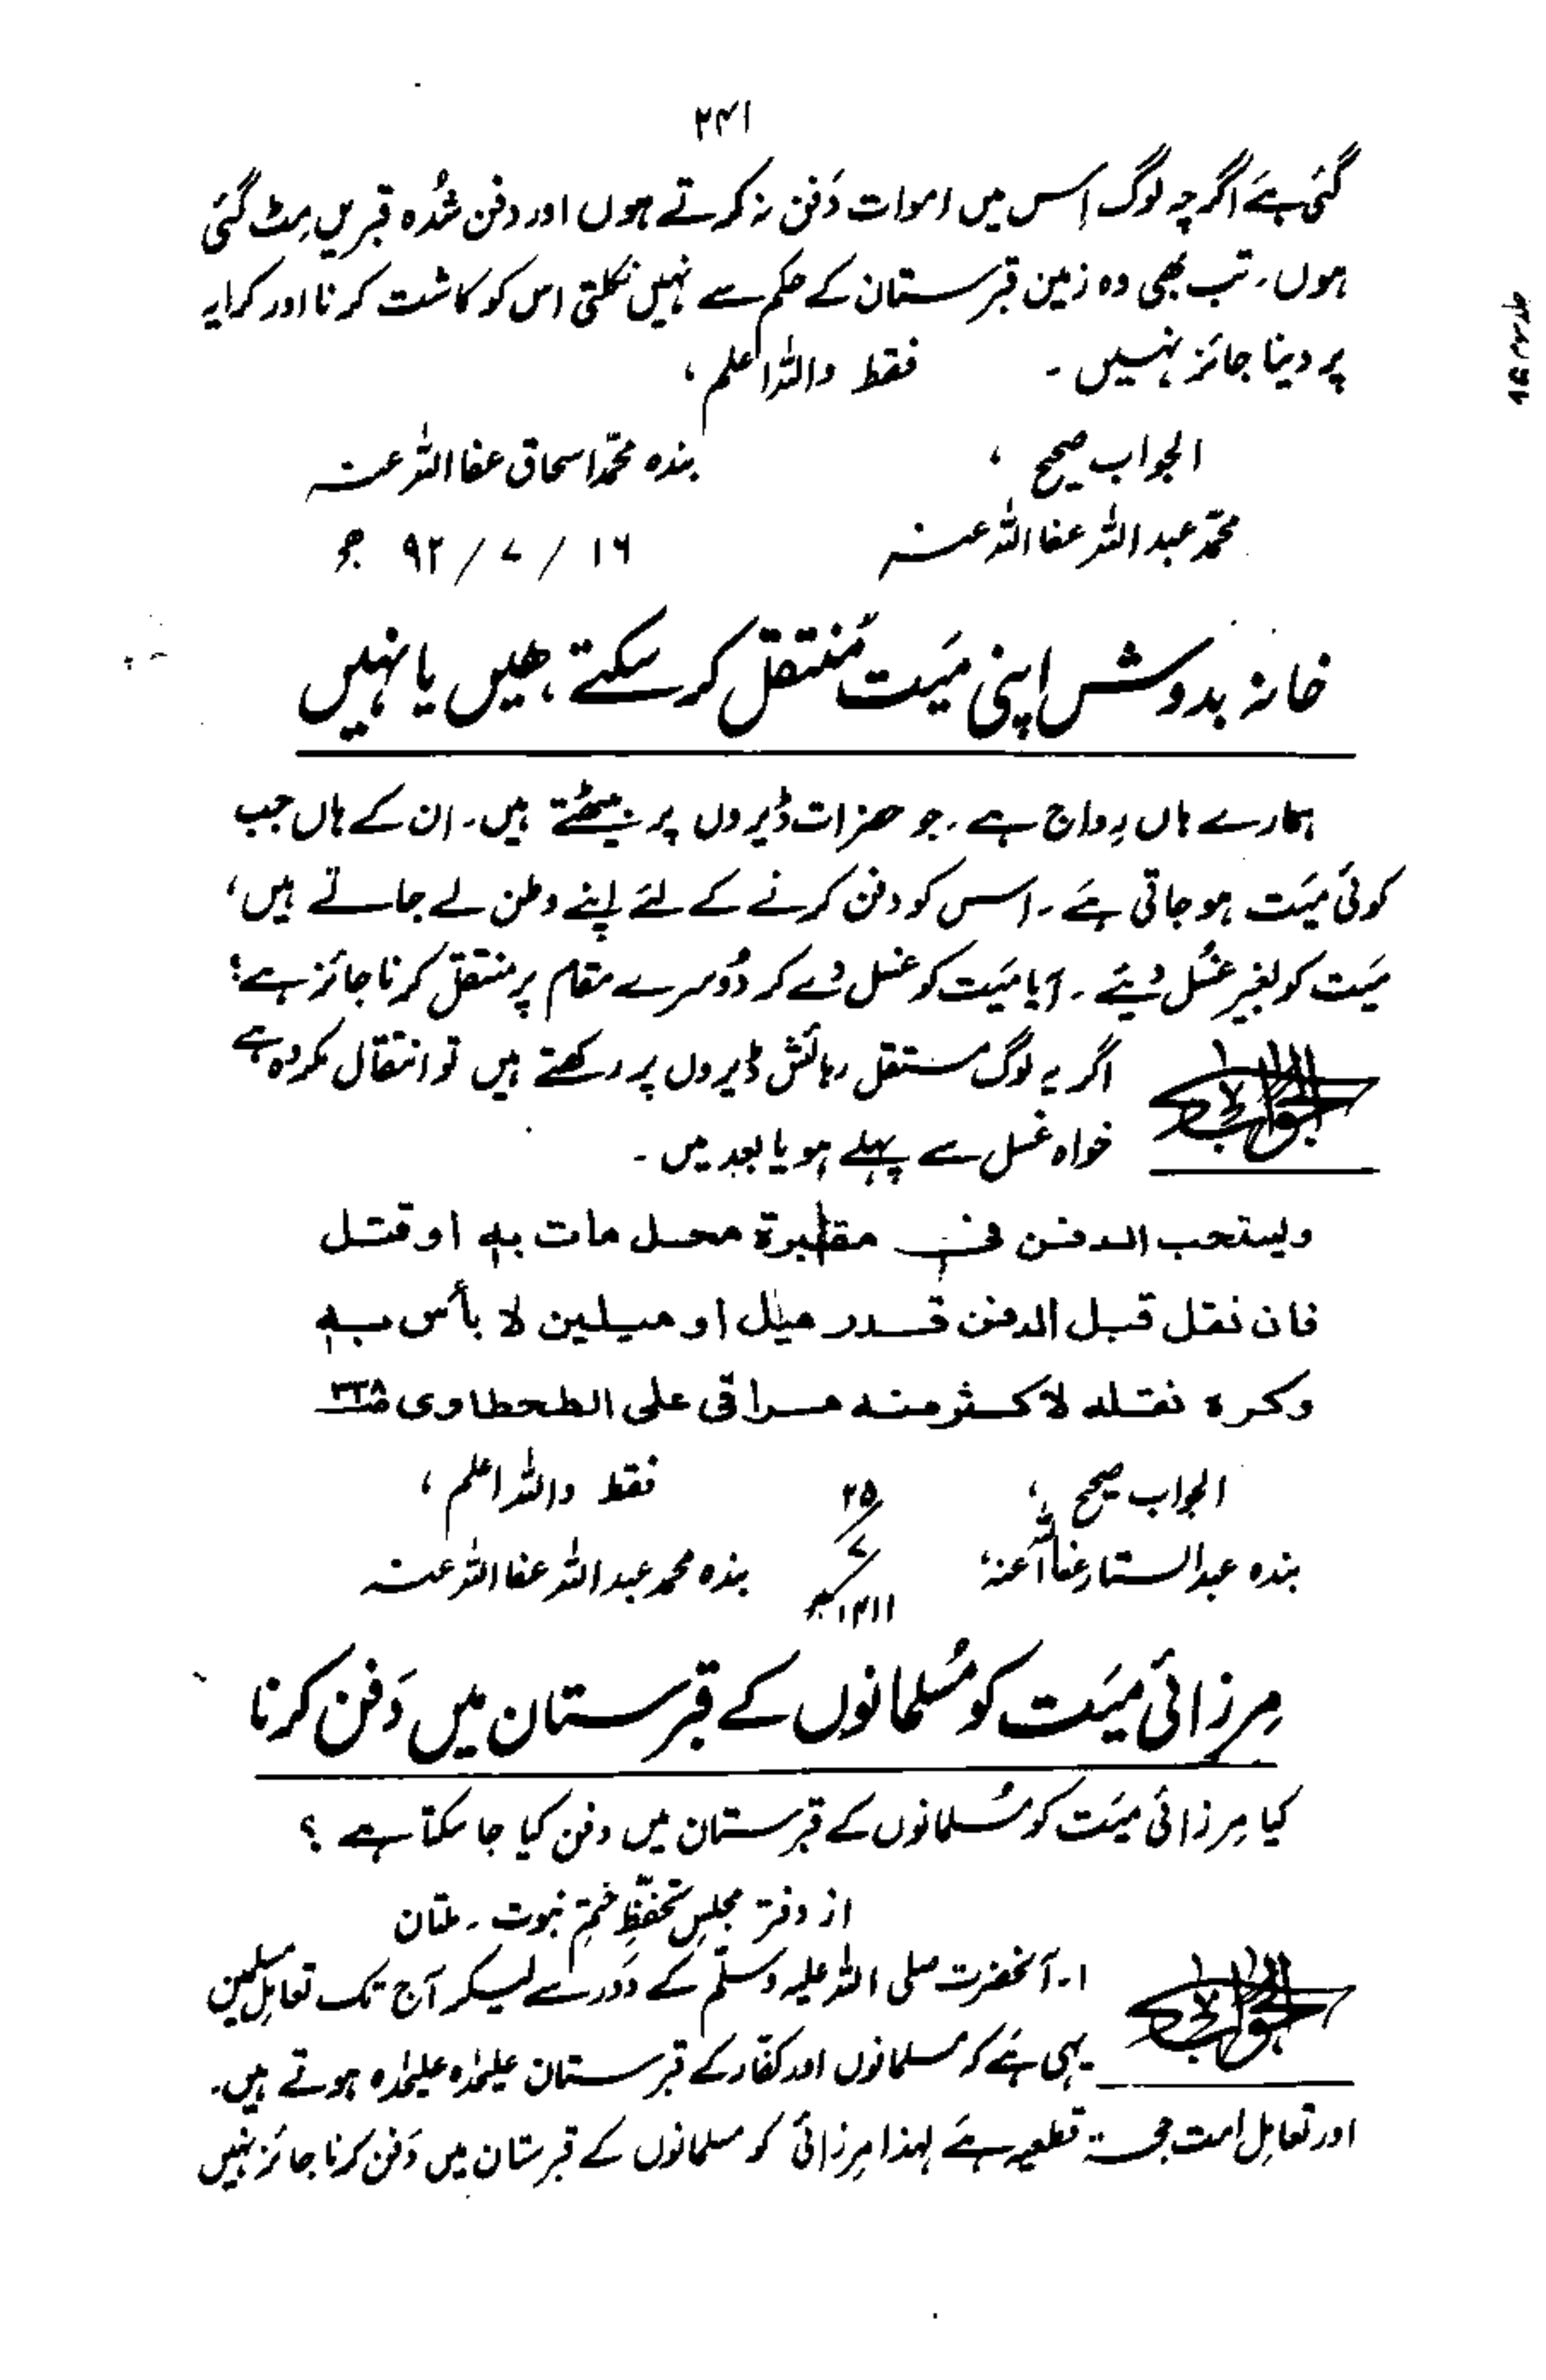 ۲۴۱
گئی ہے اگرچہ لوگ اِس میں اموات دَفن نہ کرتے ہوں اور دفن شدُہ قبریں مِٹ گئی
ہوں۔ تب بھی وہ زمین قبرستان کے حکم سے نہیں نکلتی اس کو کاشت کرنا اور کرایہ
پر دینا جائز نہیں۔ فقط واللہ اعلم،
الجواب صحیح، بندہ محمّد اسحاق عفا اللہ عنہ
محمّد عبد اللہ عفا اللہ عنہ ۱۶ / ۷ / ۹۲ ھ
خانہ بدوش اپنی میّت مُنتقل کر سکتے ہیں یا نہیں
ہمارے ہاں رِواج ہے۔ جو حضرات ڈیروں پر بیٹھتے ہیں۔ ان کے ہاں جب
کوئی میّت ہو جاتی ہے۔ اس کو دفن کرنے کے لئے اپنے وطن لے جاتے ہیں،
میّت کو بغیر غسُل دیئے۔ آیا میّت کو غسل دے کر دُوسرے مقام پر منتقل کرنا جائز ہے؟
الجواب اگر یہ لوگ مستقل رہائش ڈیروں پر رکھتے ہیں تو انتقال مکروہ ہے
خواہ غسل سے پہلے ہو یا بعد میں۔
ویستحب الدفن فی مقبرة محل مات به او قتل
فان نقل قبل الدفن قدر میل او میلین لا بأس به
وکره نقله لاکثر منه مراقی علی الطحطاوی
الجواب صحیح، فقط واللہ اعلم،
بندہ عبد الستار عفا اللہ عنہ، ۲۵ / ۷ / ۱۴۱۱ھ بندہ محمد عبد اللہ عفا اللہ عنہ
مِرزائی میّت کو مُسلمانوں کے قبرستان میں دَفن کرنا
کیا مِرزائی میّت کو مسُلمانوں کے قبرستان میں دفن کیا جا سکتا ہے؟
از دفتر مجلسِ تحفّظِ ختمِ نبوت۔ ملتان
الجواب ۱۔ آنحضرت صلی اللہ علیہ وسلّم کے دَور سے لیکر آج تک تعاملِ مسلمین
یہی ہے کہ مسلمانوں اور کفّار کے قبرستان علیحٰدہ علیحٰدہ ہوتے ہیں۔
اور تعاملِ امت حجۃ قطعیہ ہے لہذا مِرزائی کو مسلمانوں کے قبرستان میں دَفن کرنا جائز نہیں